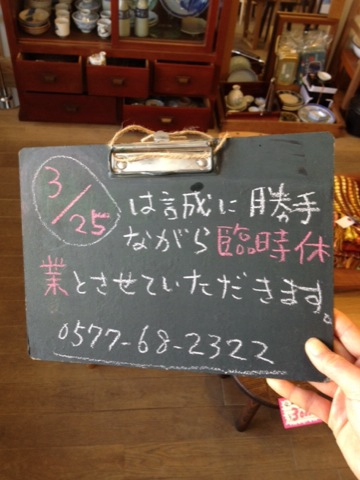 3/25
は誠に勝手
ながら臨時休
業とさせていただきます。
0577-68-2322